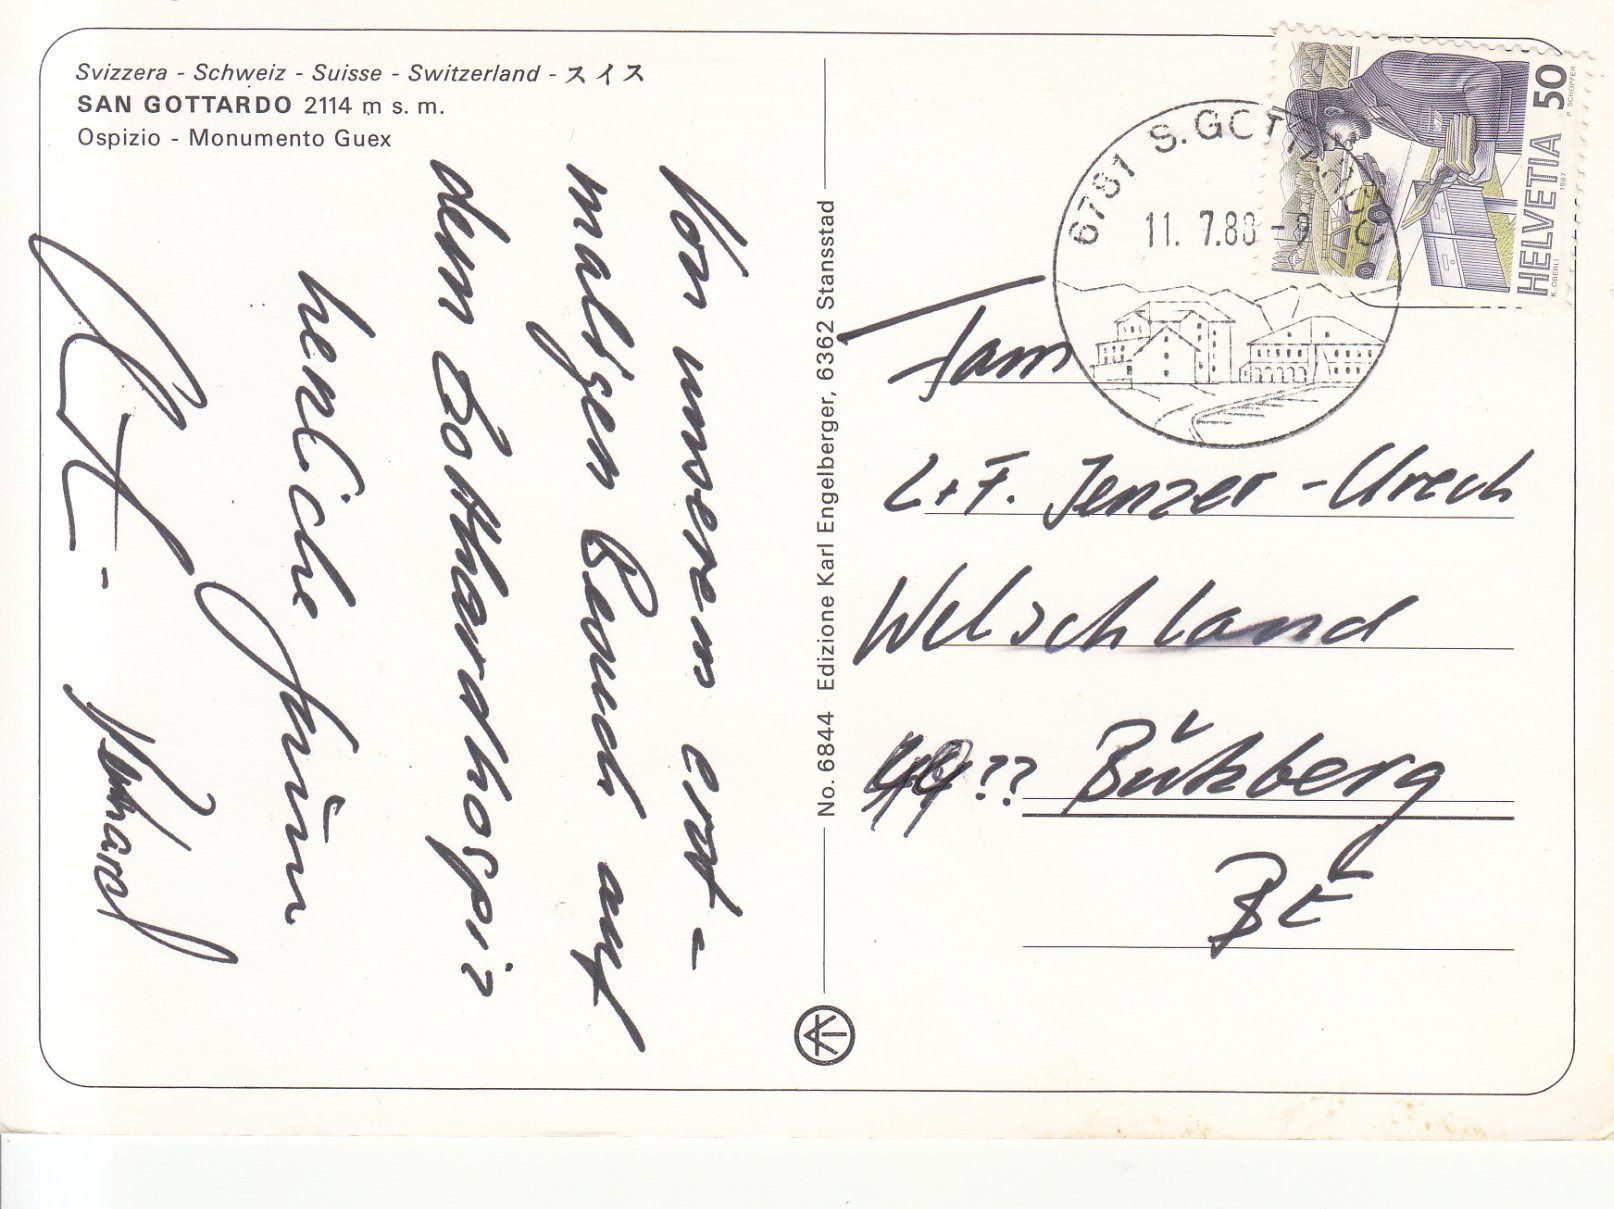 Svizzera - Schweiz - Suisse - Switzerland - スイス
SAN GOTTARDO 2114 m s. m.
Ospizio - Monumento Guex
Von unserem erst-
maligen Besuch auf
dem Gotthardhospiz
herzliche Grüsse
No. 6844 Edizione Karl Engelberger, 6362 Stansstad
6781 S. GOTTARDO
11. 7.88
HELVETIA 50
P. SCHOPFER
K. OBERLI 1987
Fam
L+F. Jenzer-Urech
Welschland
?? Bützberg
BE